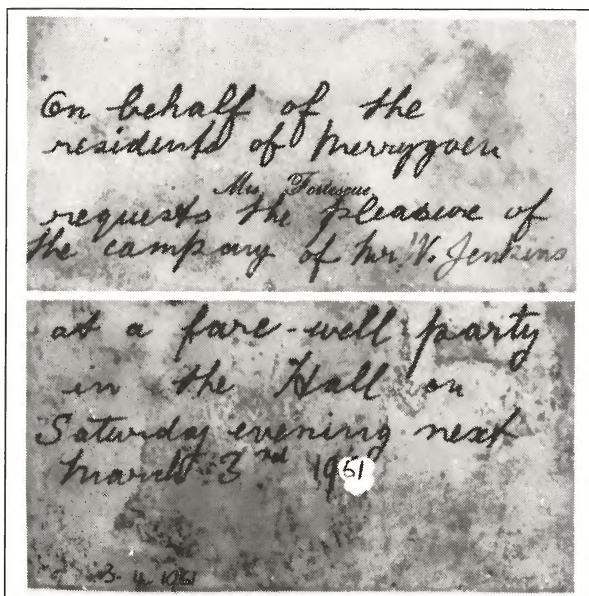 On behalf of the
residents of Merrygoen
Mrs. Fortescue
requests the pleasure of
the company of Mr V. Jenkins
at a fare-well party
in the Hall on
Saturday evening next
March 3rd 1961
1961